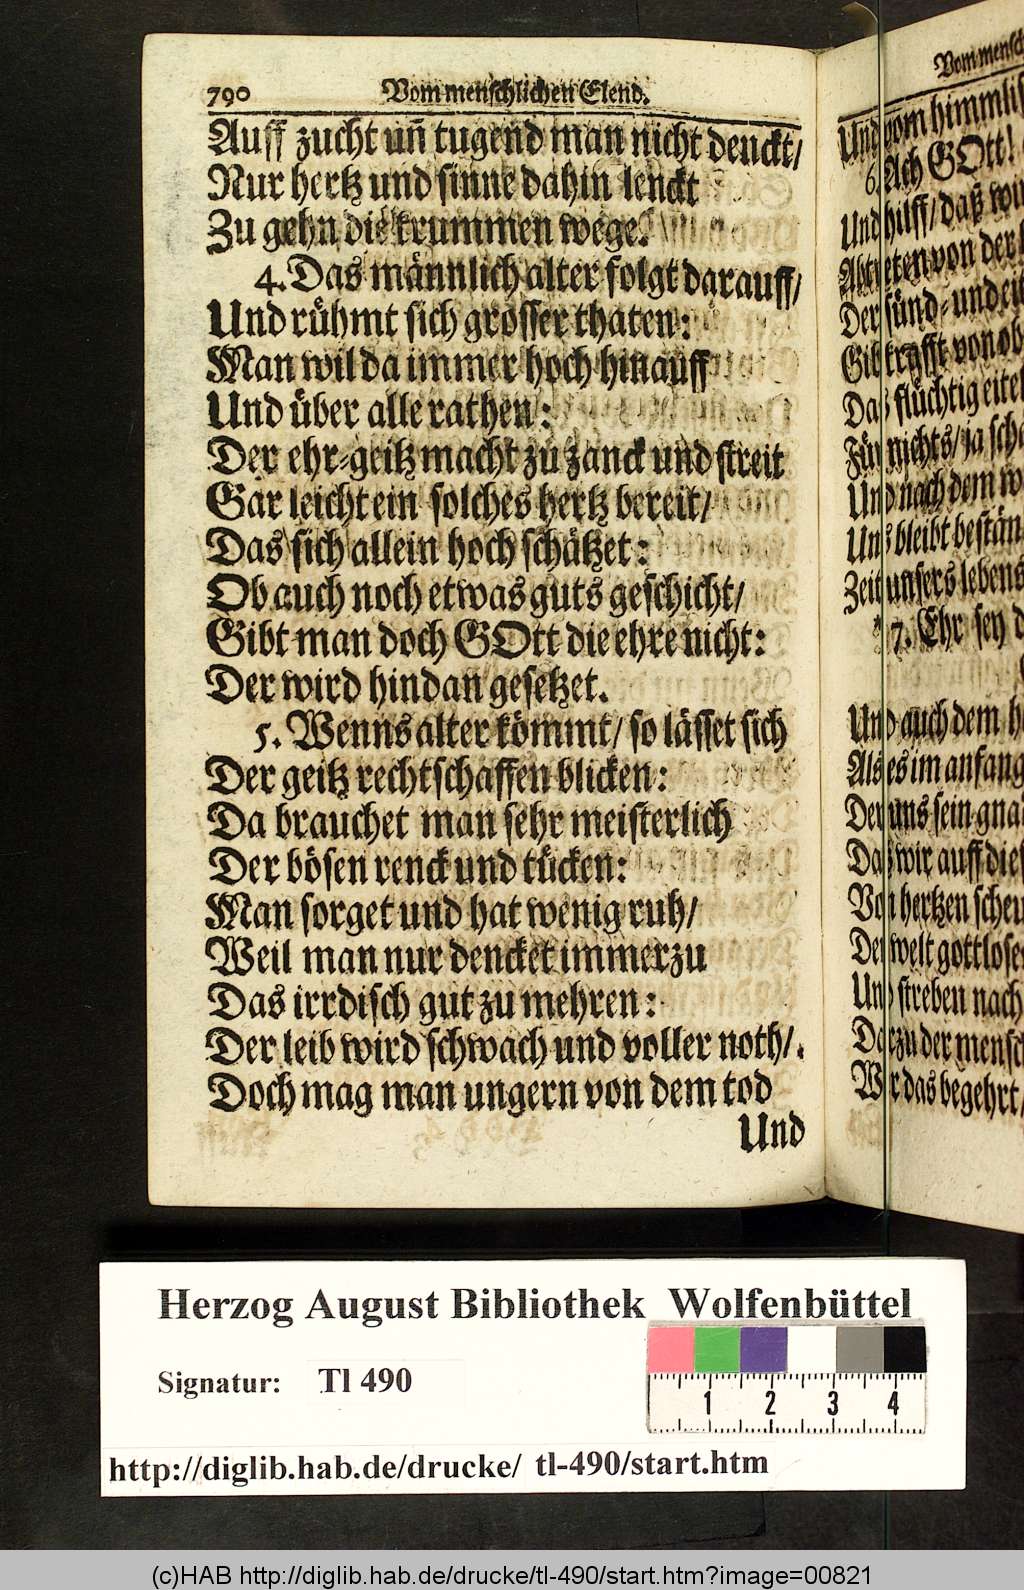 790 Vom menschlichen Elend.
Auff zucht uñ tugend man nicht denckt/
Nur hertz und sinne dahin lenckt
Zu gehn die krummen wege.
4. Das männlich alter folgt darauff/
Und rühmt sich grosser thaten:
Man wil da immer hoch hinauff
Und über alle rathen:
Der ehr-geitz macht zu zanck und streit
Gar leicht ein solches hertz bereit/
Das sich allein hoch schätzet:
Ob auch noch etwas guts geschicht/
Gibt man doch GOtt die ehre nicht:
Der wird hindan gesetzet.
5. Wenns alter kömmt/ so lässet sich
Der geitz rechtschaffen blicken:
Da brauchet man sehr meisterlich
Der bösen renck und tücken:
Man sorget und hat wenig ruh/
Weil man nur dencket immerzu
Das irrdisch gut zu mehren:
Der leib wird schwach und voller noth/.
Doch mag man ungern von dem tod
Und
Vom mensch
Und vom himmlis
6. Ach GOtt!
Und hilff/ daß wir
Abtreten von der
Der sünd- und eit
Gib krafft von ob
Daß flüchtig eitel
Für nichts/ ja scha
Und nach dem w
Uns bleibt bestän
Zeit unsers lebens
7. Ehr sey d
Und auch dem h
Als es im anfang
Der uns sein gna
Daß wir auff dies
Von hertzen scheu
Der welt gottlose
Und streben nach
Darzu der mensch
Wer das begehrt/
Herzog August Bibliothek Wolfenbüttel
Signatur: Tl 490
1 2 3 4
http://diglib.hab.de/drucke/ tl-490/start.htm
(c)HAB http://diglib.hab.de/drucke/tl-490/start.htm?image=00821